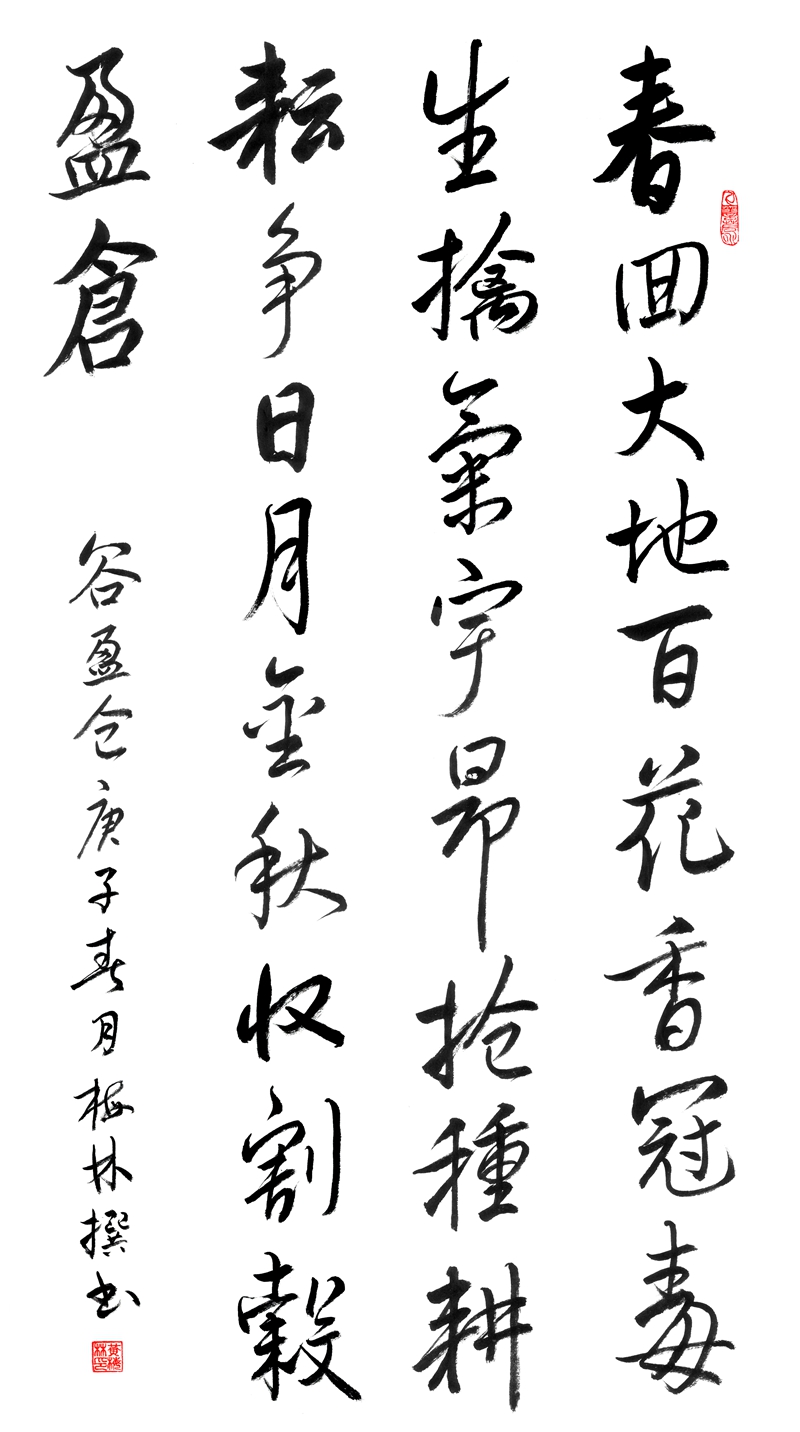 春回大地百花香冠毒
生擒氣宇昂抢種耕
耘争日月金秋收割穀
盈倉
谷盈仓庚子春月梅林撰书